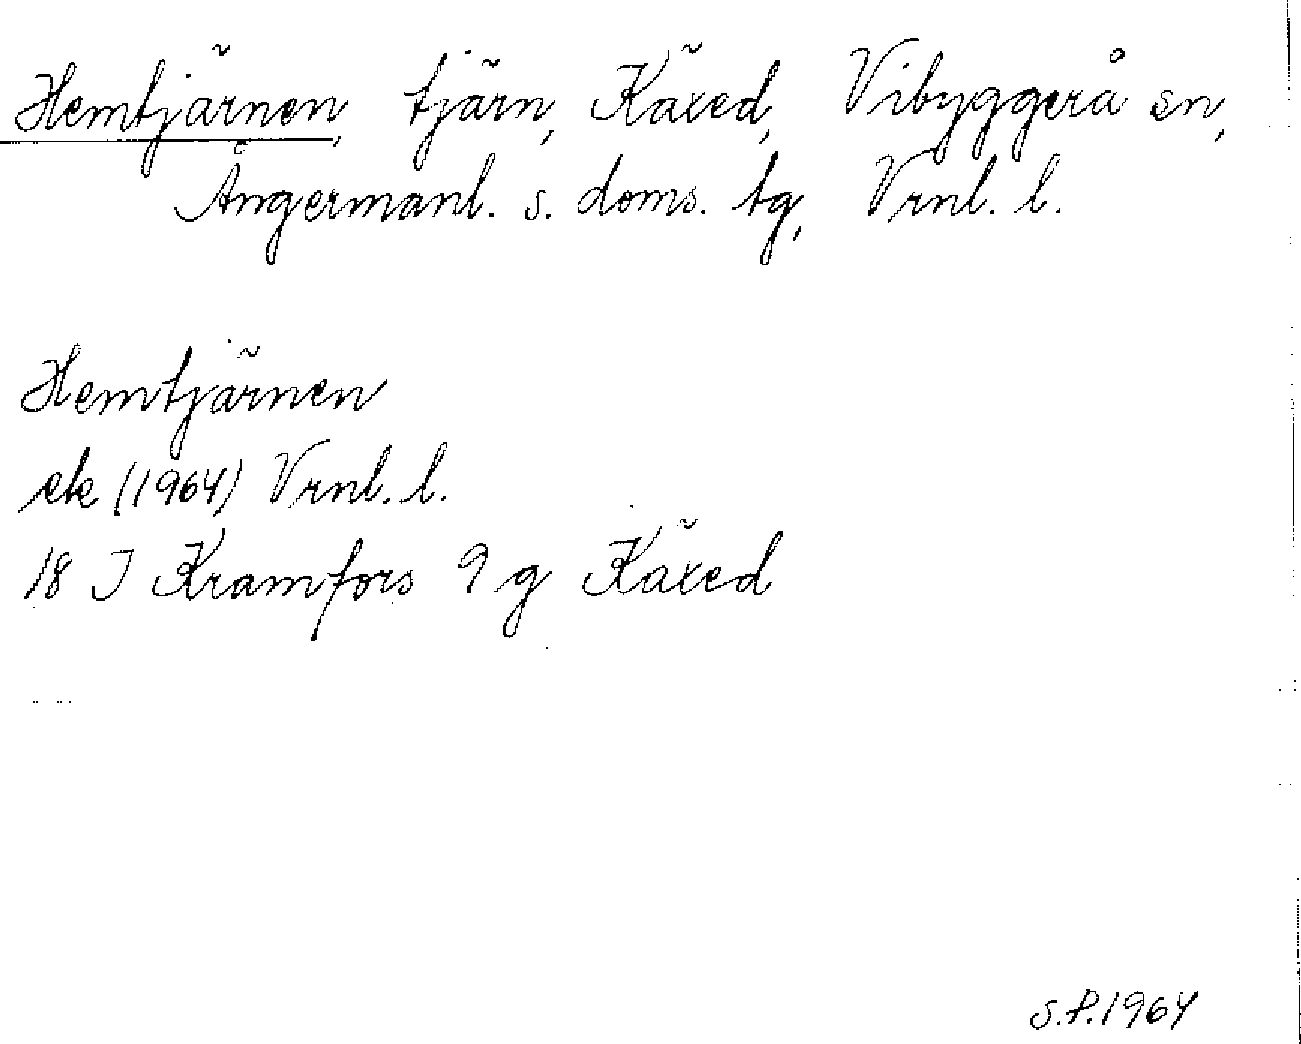 Hemtjärnen, tjärn, Käxed, Vibyggerå sn,
Ångermanl. s. doms. tg, Vrnl. l.
Hemtjärnen
ek (1964) Vrnl. l.
18 I Kramfors 9 g Käxed
S.P. 1964